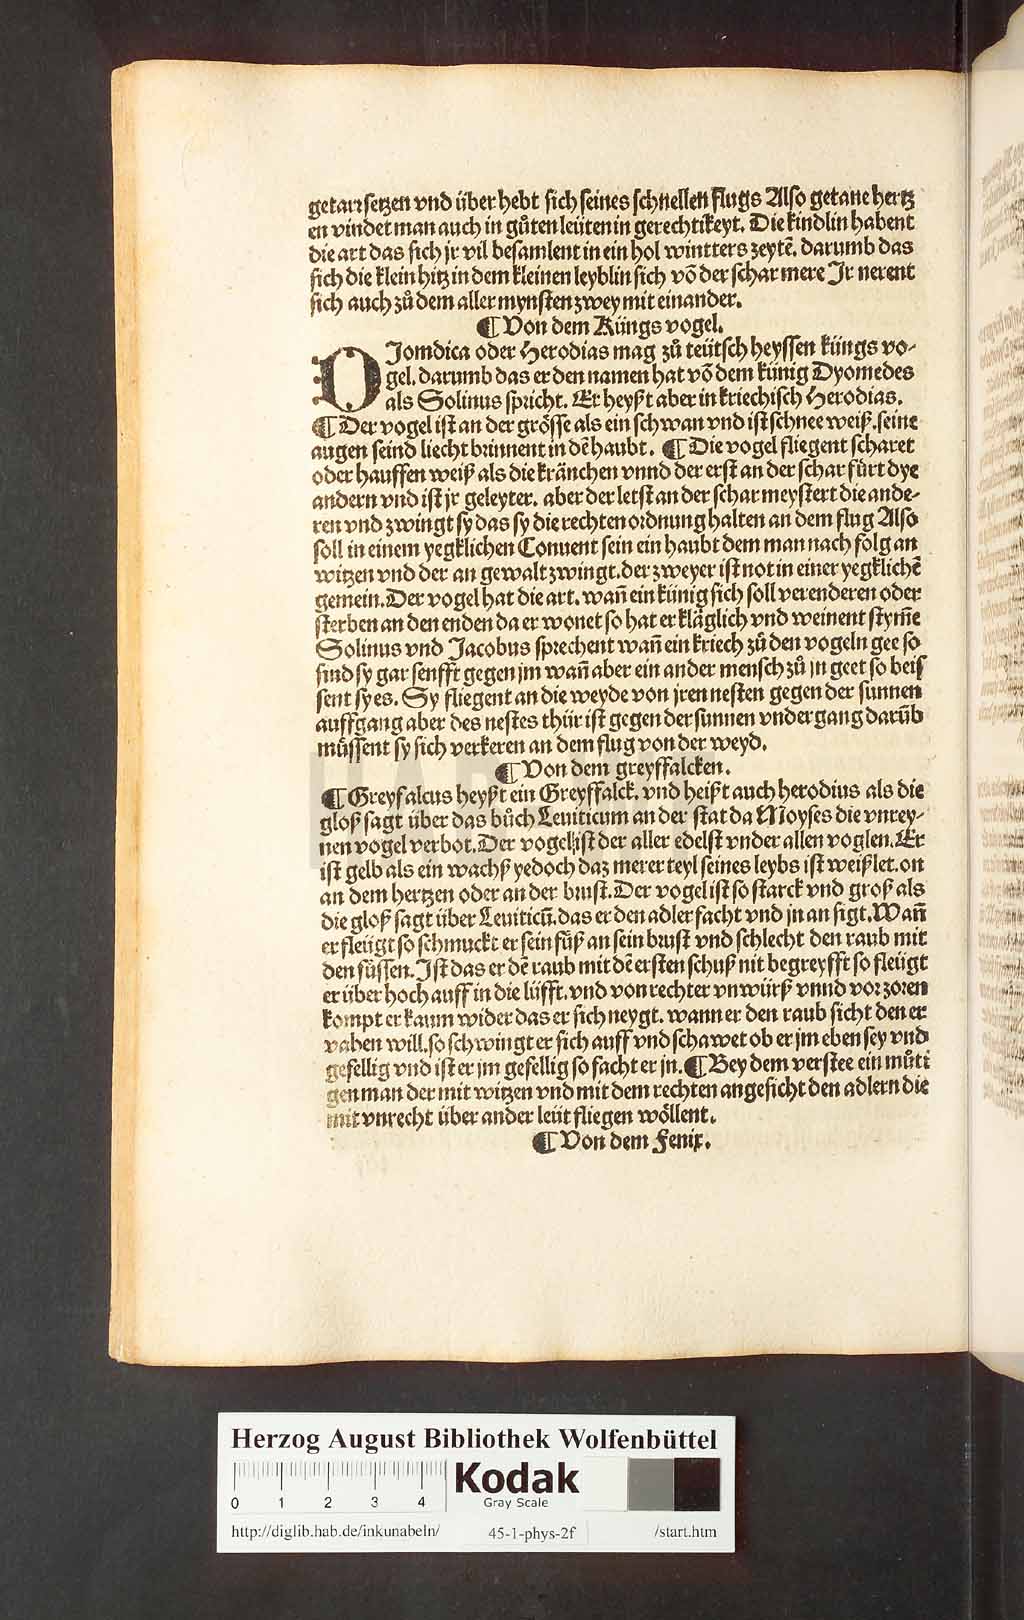 getan setzen vnd über hebt sich seines schnellen flugs Also getane hertz
en vindet man auch in gůten leüten in gerechtikeyt. Die kindlin habent
die art das sich jr vil besamlent in ein hol wintters zeytē. darumb das
sich die klein hitz in dem kleinen leyblin sich vō der schar mere Jr nerent
sich auch zů dem aller mynsten zwey mit einander.
¶ Von dem Küngs vogel.
DJomdica oder Herodias mag zů teütsch heyssen küngs vo-
gel. darumb das er den namen hat vō dem künig Dyomedes
als Solinus spricht. Er heyßt aber in kriechisch Herodias.
¶ Der vogel ist an der grösse als ein schwan vnd ist schnee weiß. seine
augen seind liecht brinnent in dē haubt. ¶ Die vogel fliegent scharet
oder hauffen weiß als die kränchen vnnd der erst an der schar fürt dye
andern vnd ist jr geleyter. aber der letst an der schar meystert die ande-
ren vnd zwingt sy das sy die rechten ordnung halten an dem flug Also
soll in einem yegklichen Conuent sein ein haubt dem man nach folg an
witzen vnd der an gewalt zwingt. der zweyer ist not in einer yegklichē
gemein. Der vogel hat die art. wañ ein künig sich soll verenderen oder
sterben an den enden da er wonet so hat er kläglich vnd weinent stym̄e
Solinus vnd Jacobus sprechent wañ ein kriech zů den vogeln gee so
sind sy gar senfft gegen jm wañ aber ein ander mensch zů in geet so beis
sent sy es. Sy fliegent an die weyde von jren nesten gegen der sunnen
auffgang aber des nestes thür ist gegen der sunnen vnder gang darūb
můssent sy sich verkeren an dem flug von der weyd.
¶ Von dem greyffalcken.
¶ Greyfalcus heyßt ein Greyffalck. vnd heißt auch herodius als die
gloß sagt über das bůch Leuiticum an der stat da Moyses die vnrey-
nen vogel verbot. Der vogel ist der aller edelst vnder allen voglen. Er
ist gelb als ein wachß yedoch daz merer teyl seines leybs ist weißlet. on
an dem hertzen oder an der brust. Der vogel ist so starck vnd groß als
die gloß sagt über Leuiticū. das er den adler facht vnd jn an sigt. Wañ
er fleügt so schmuckt er sein füß an sein brust vnd schlecht den raub mit
den füssen. Ist das er dē raub mit dē ersten schuß nit begreyfft so fleügt
er über hoch auff in die lüfft. vnd von rechter vnwürß vnnd vor zoren
kompt er kaum wider das er sich neygt. wann er den raub sicht den er
vahen will. so schwingt er sich auff vnd schawet ob er jm eben sey vnd
gefellig vnd ist er jm gefellig so facht er jn. ¶ Bey dem verstee ein můti
gen man der mit witzen vnd mit dem rechten angesicht den adlern die
mit vnrecht über ander leüt fliegen wöllent.
¶ Von dem Fenix.
Herzog August Bibliothek Wolfenbüttel
0 1 2 3 4
Kodak
Gray Scale
http://diglib.hab.de/inkunabeln/ 45-1-phys-2f /start.htm